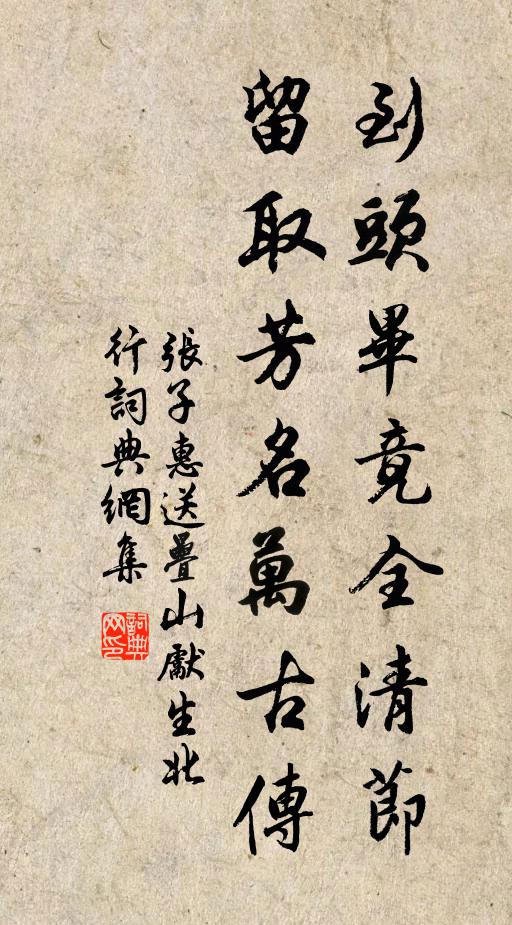 到頭畢竟全清節
留取芳名萬古傳
張子惠送疊山獻生北
行詞典網集
詞典網印